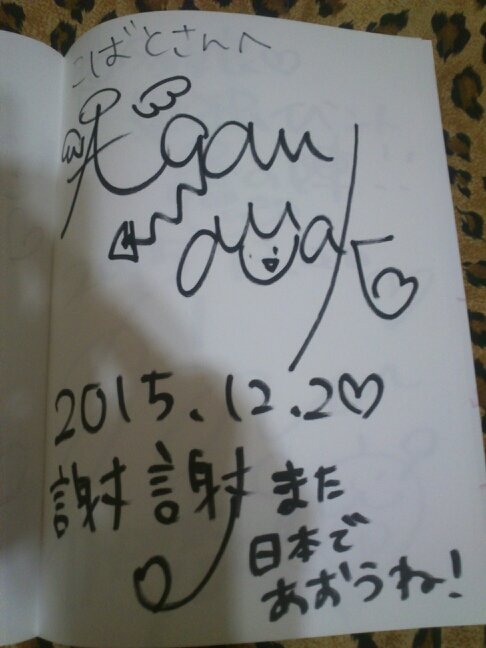 こばとさんへ
2015.12.2♡
謝謝 また
日本で
あおうね!